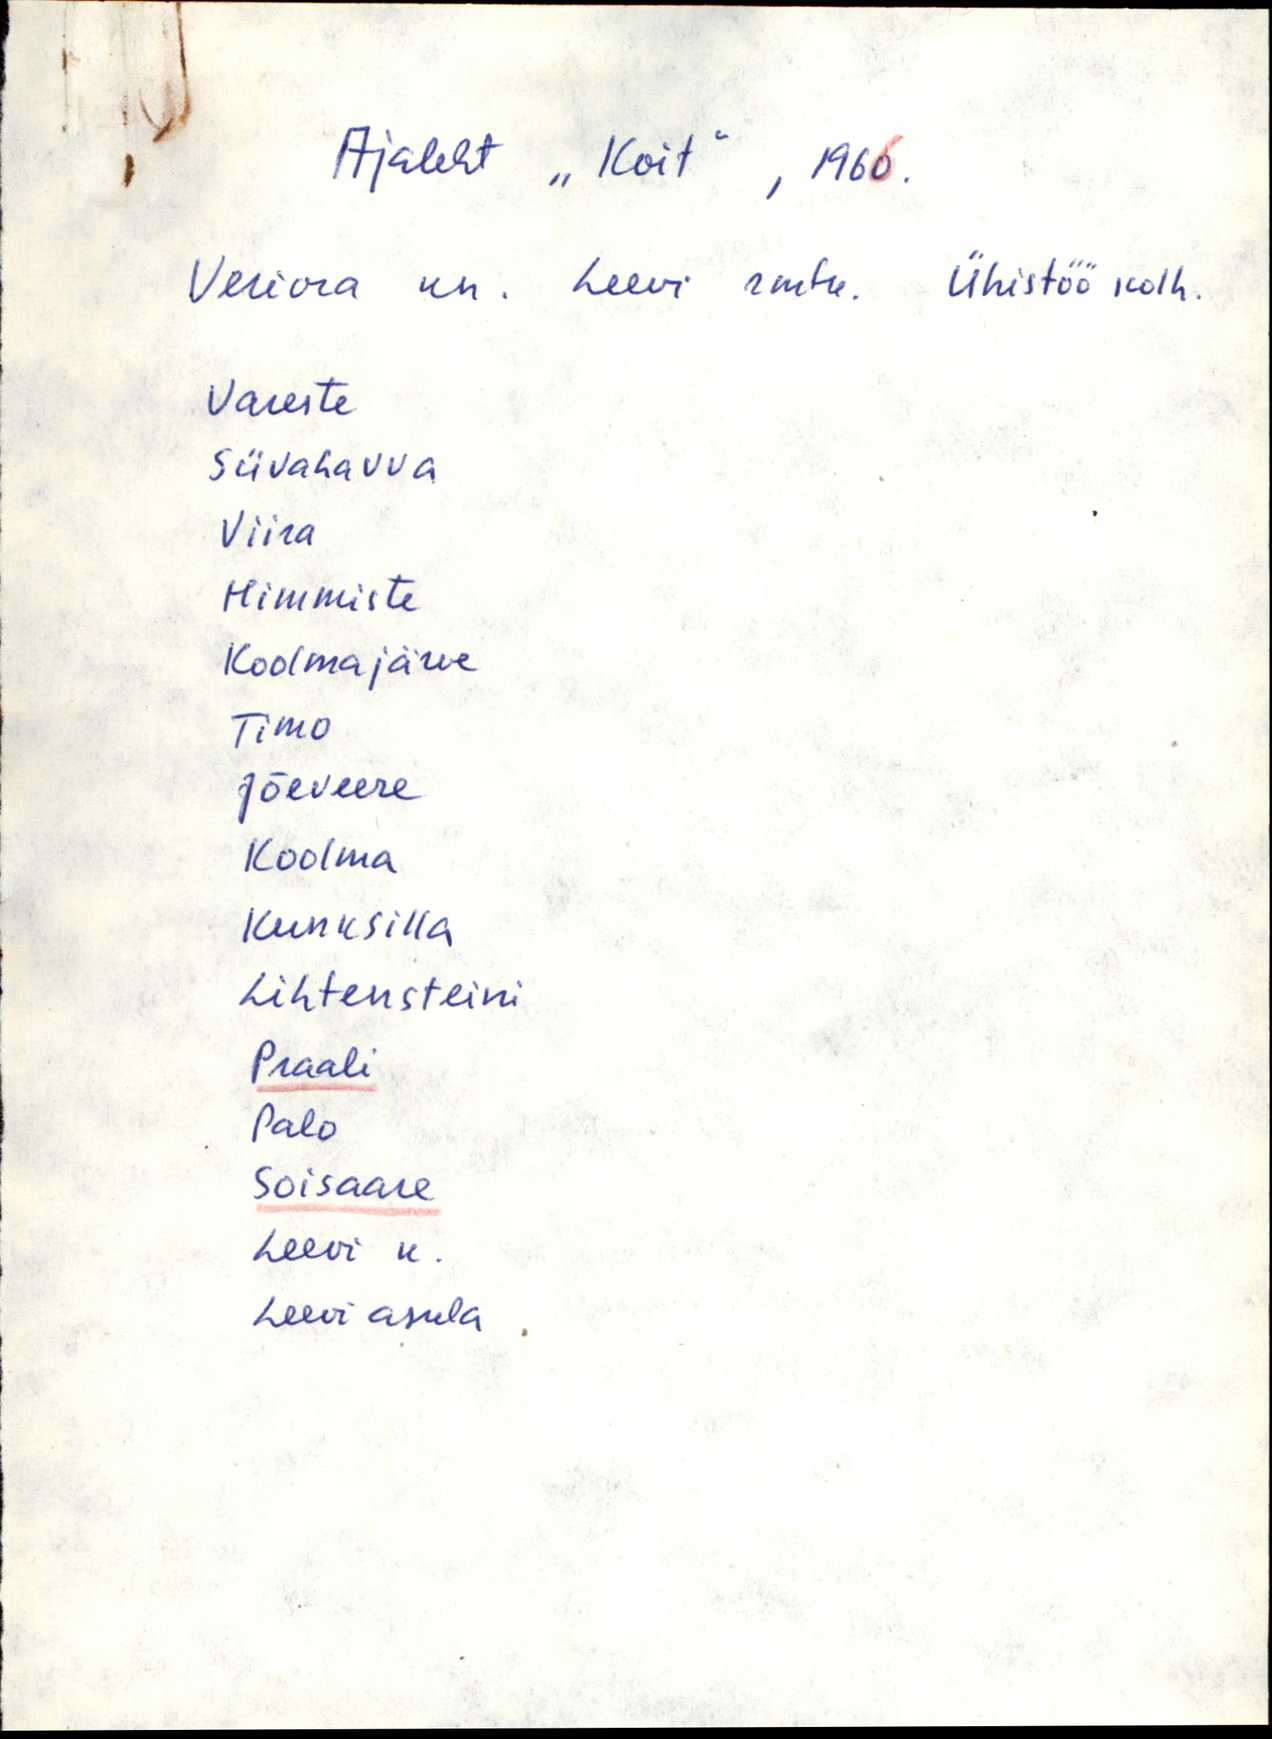 Ajaleht „Koit“, 1966.
Veriora kn. Leevi rmtk. Ühistöö kolh.
Vareste
Süvahavva
Viira
Himmiste
Koolmajärve
Timo
Jõeveere
Koolma
Kunksilla
Lihtensteini
Praali
Palo
Soisaare
Leevi k.
Leevi asula